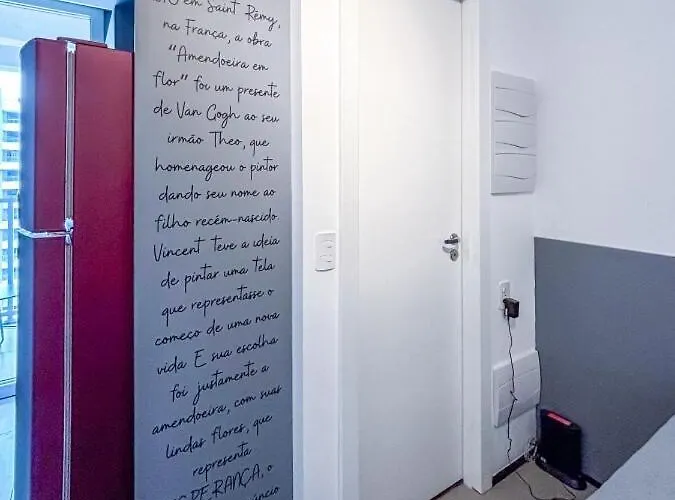 em Saint Rémy,
na França, a obra
"Amendoeira em
flor" foi um presente
de Van Gogh ao seu
irmão Theo, que
homenageou o pintor
dando seu nome ao
filho recém-nascido.
Vincent teve a ideia
de pintar uma tela
que representasse o
começo de uma nova
vida E sua escolha
foi justamente a
amendoeira, com suas
lindas flores, que
representa